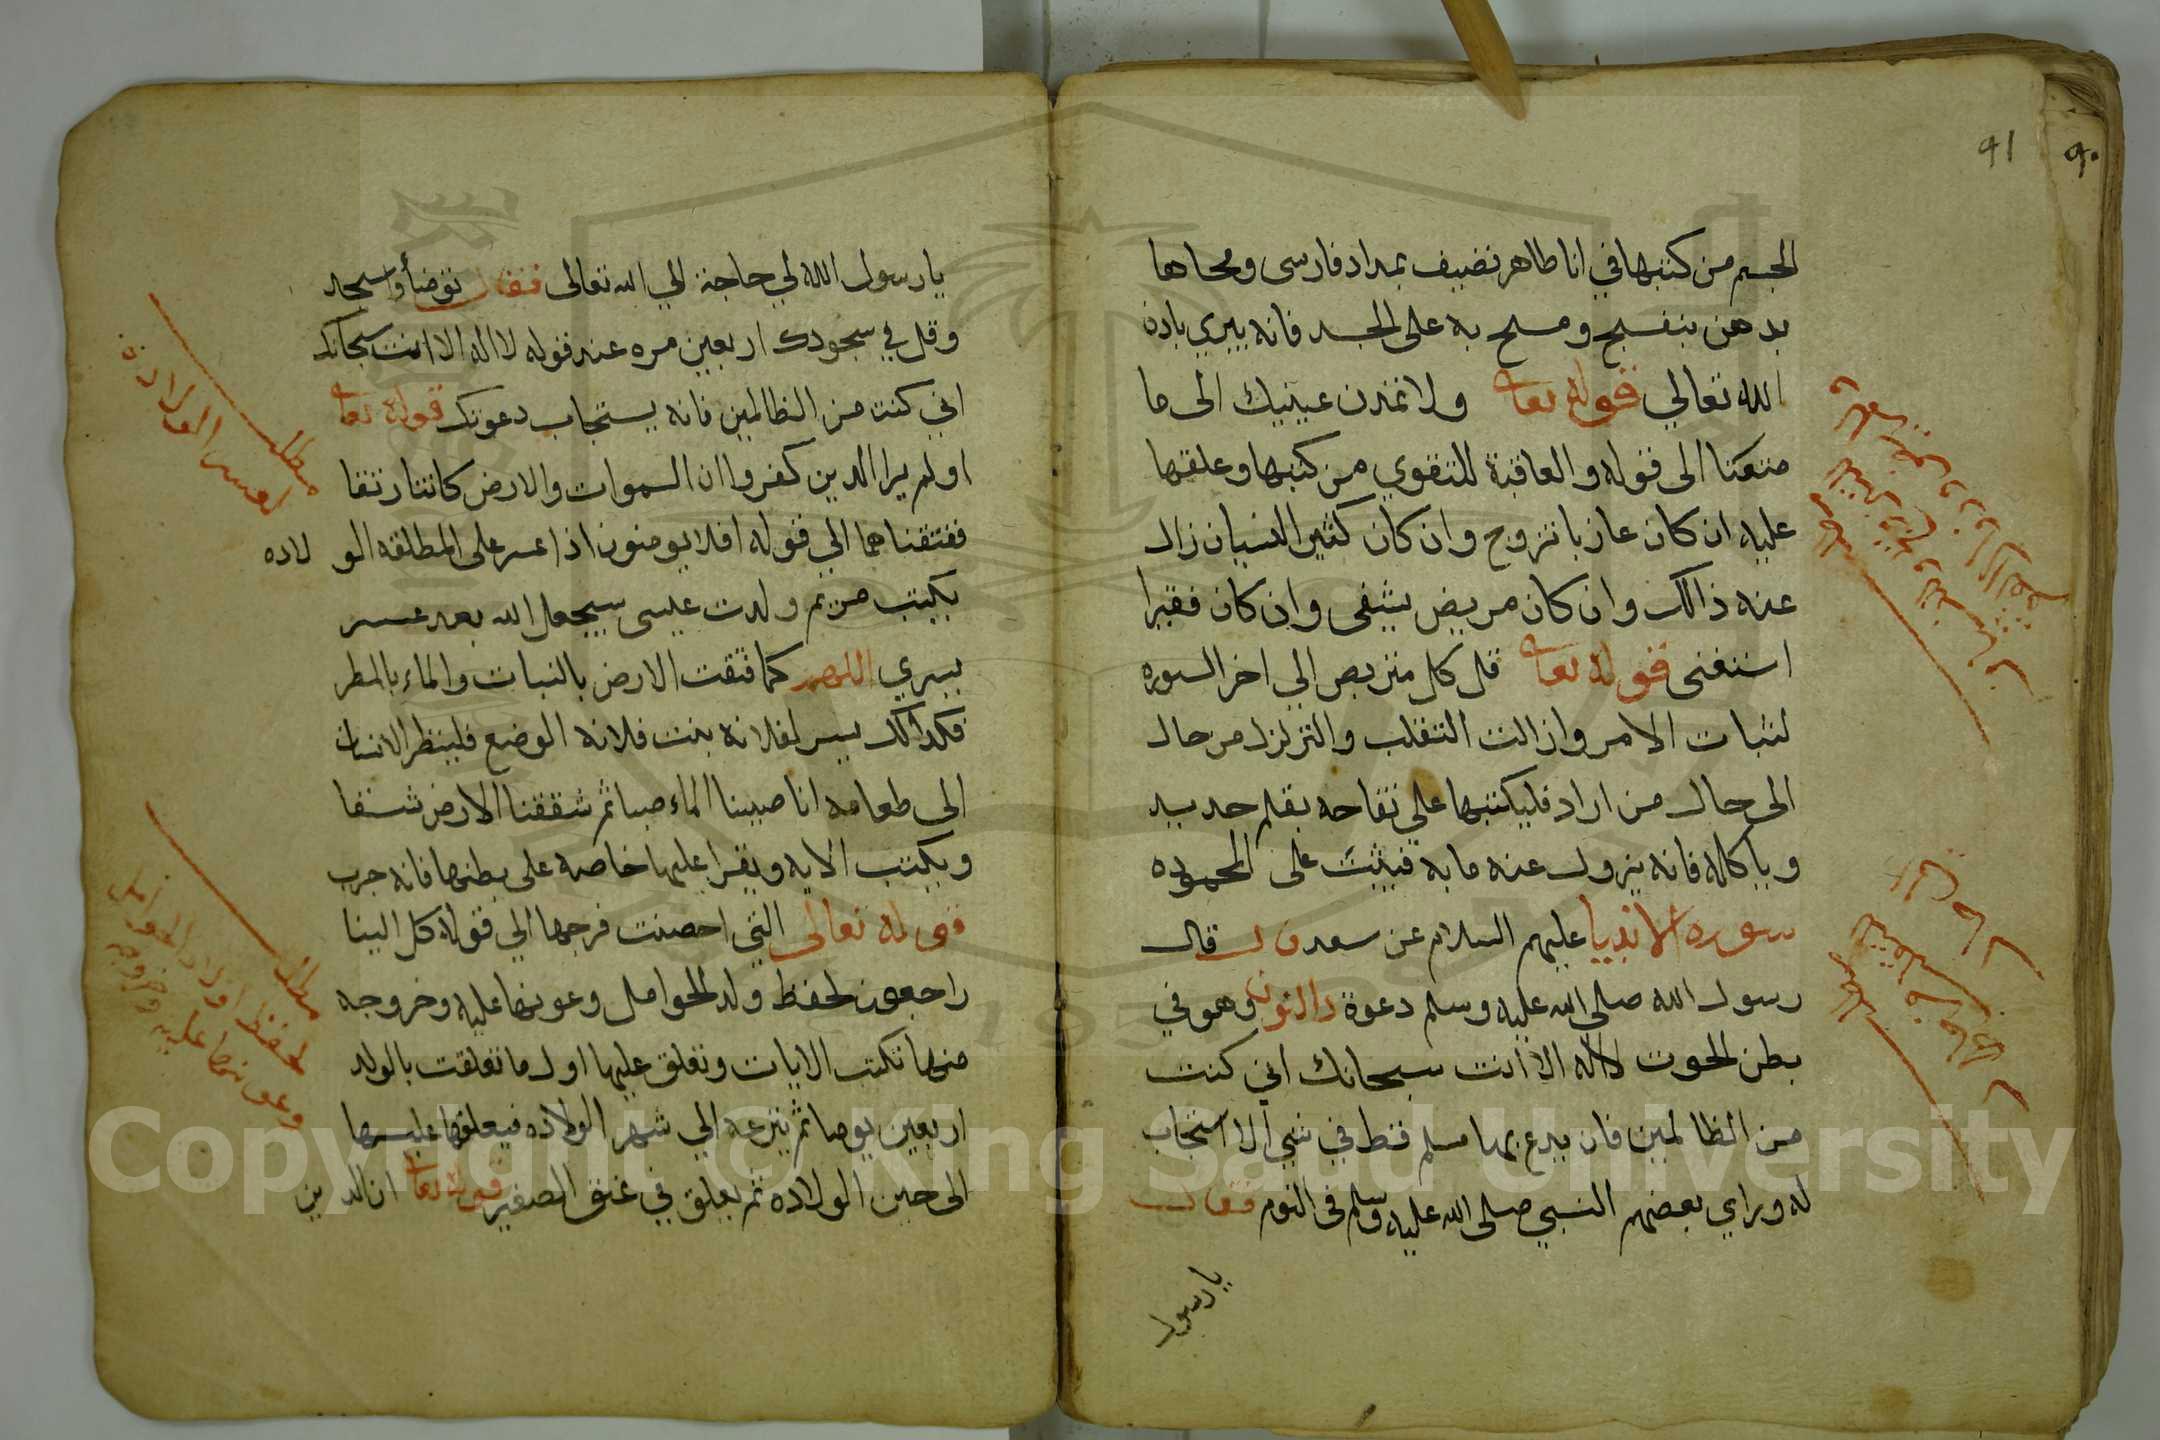 ٩١
٩٠
الجسم من كتبها في انا طاهر نضيف بمداد فارسى ومحاها
بدهن بنفسج ومسح به على الجسد فانه يبري باذن
الله تعالي قوله تعا ولا تمدن عينيك الى ما
متعنا الى قوله والعاقبة للتقوي من كتبها وعلقها
عليه ان كان عازبا تزوج وان كان كثير النسيان زال
عنه ذالك وان كان مريض يشفى وان كان فقيرا
استغنى قوله تعا قل كل متربص الي اخر السوره
لثبات الامر وازالت التقلب والتزلزل من حال
الى حال من اراد فليكتبها علي تفاحه بقلم حديد
وياكله فانه يزول عنه مابه فيثبت على المحموده
سورة الانبيا عليهم السلام عن سعد قال
رسول الله صلى الله عليه وسلم دعوة ذا النون وهو في
بطن الحوت لااله الا انت سبحانك اني كنت
من الظالمين فان يدع بها مسلم قط في شي الا استجاب
له وراي بعضهم النبي صلى الله عليه وسلم في النوم فقال
يا رسول
يا رسول الله لي حاجة الي الله تعالى فقال توضأ واسجد
وقل في سجودك اربعين مره عند قوله لا اله الا انت سبحانك
اني كنت من الظالمين فانه يستجاب دعوتك قوله تعا
اولم يرا الذين كفروا ان السموات والارض كانتا رتقا
ففتقناهما الي قوله افلا يومنون اذا عسر على المطلقه الولاده
يكتب مريم ولدت عيسى سيجعل الله بعد عسر
يسري اللهم كما فتقت الارض بالنبات والماء بالمطر
فكذالك يسر لفلانه بنت فلانه الوضع فلينظر الانسان
الى طعامه انا صببنا الماء صبا ثم شققنا الارض شقا
ويكتب الايه ويقرا عليها خاصه على بطنها فانه جرب
قوله تعالى التي احصنت فرجها الي قوله كل الينا
راجعون لحفظ ولد الحوامل وعونها عليه وخروجه
منها تكتب الايات وتعلق عليها اول ما تعلقت بالولد
اربعين يوما ثم ينزعه الي شهر الولاده فيعلقها عليها
الى حين الولاده ثم يعلق في عنق الصغير قوله تعا ان الذين
مطلب
لعسر الولادة
مطلب
لحفظ اولاد الحوامل
وعونها عليه وخروجه